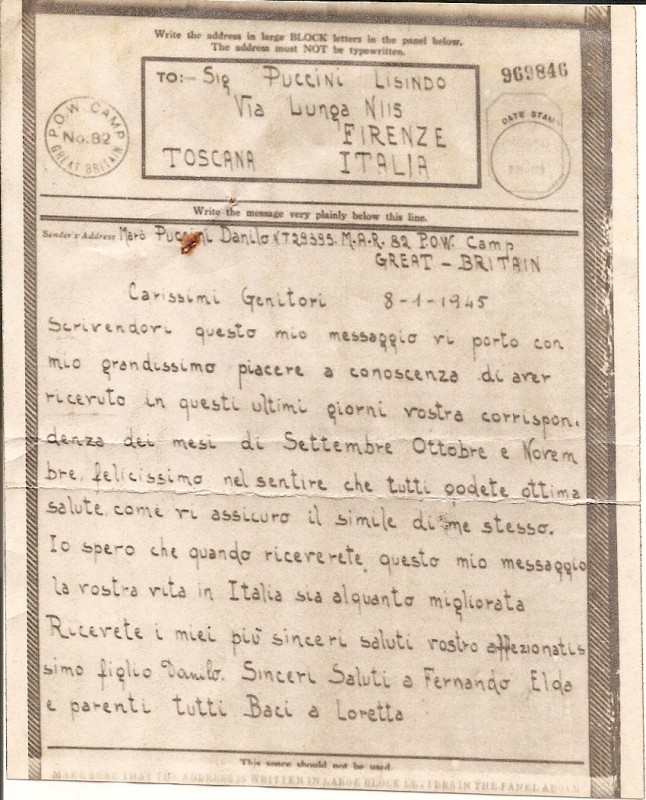 Write the address in large BLOCK letters in the panel below.
The address must NOT be typewritten.
969846
TO:- Sig Puccini Lisindo
Via Lunga N115
FIRENZE
TOSCANA ITALIA
P.O.W. CAMP
No. 82
GREAT BRITAIN
DATE STAMP
Write the message very plainly below this line.
Sender's Address Marò Puccini Danilo N T29395. M.A.R. 82 P.O.W. Camp
GREAT - BRITAIN
Carissimi Genitori 8-1-1945
Scrivendovi questo mio messaggio vi porto con
mio grandissimo piacere a conoscenza di aver
ricevuto in questi ultimi giorni vostra corrispon.
denza dei mesi di Settembre Ottobre e Novem
bre, felicissimo nel sentire che tutti godete ottima
salute, come vi assicuro il simile di me stesso.
Io spero che quando riceverete, questo mio messaggio
la vostra vita in Italia sia alquanto migliorata
Ricevete i miei più sinceri saluti vostro affezionatis
simo figlio Danilo. Sinceri Saluti a Fernando, Elda
e parenti tutti Baci a Loretta
This space should not be used.
MAKE SURE THAT THE ADDRESS IS WRITTEN IN LARGE BLOCK LETTERS IN THE PANEL ABOVE